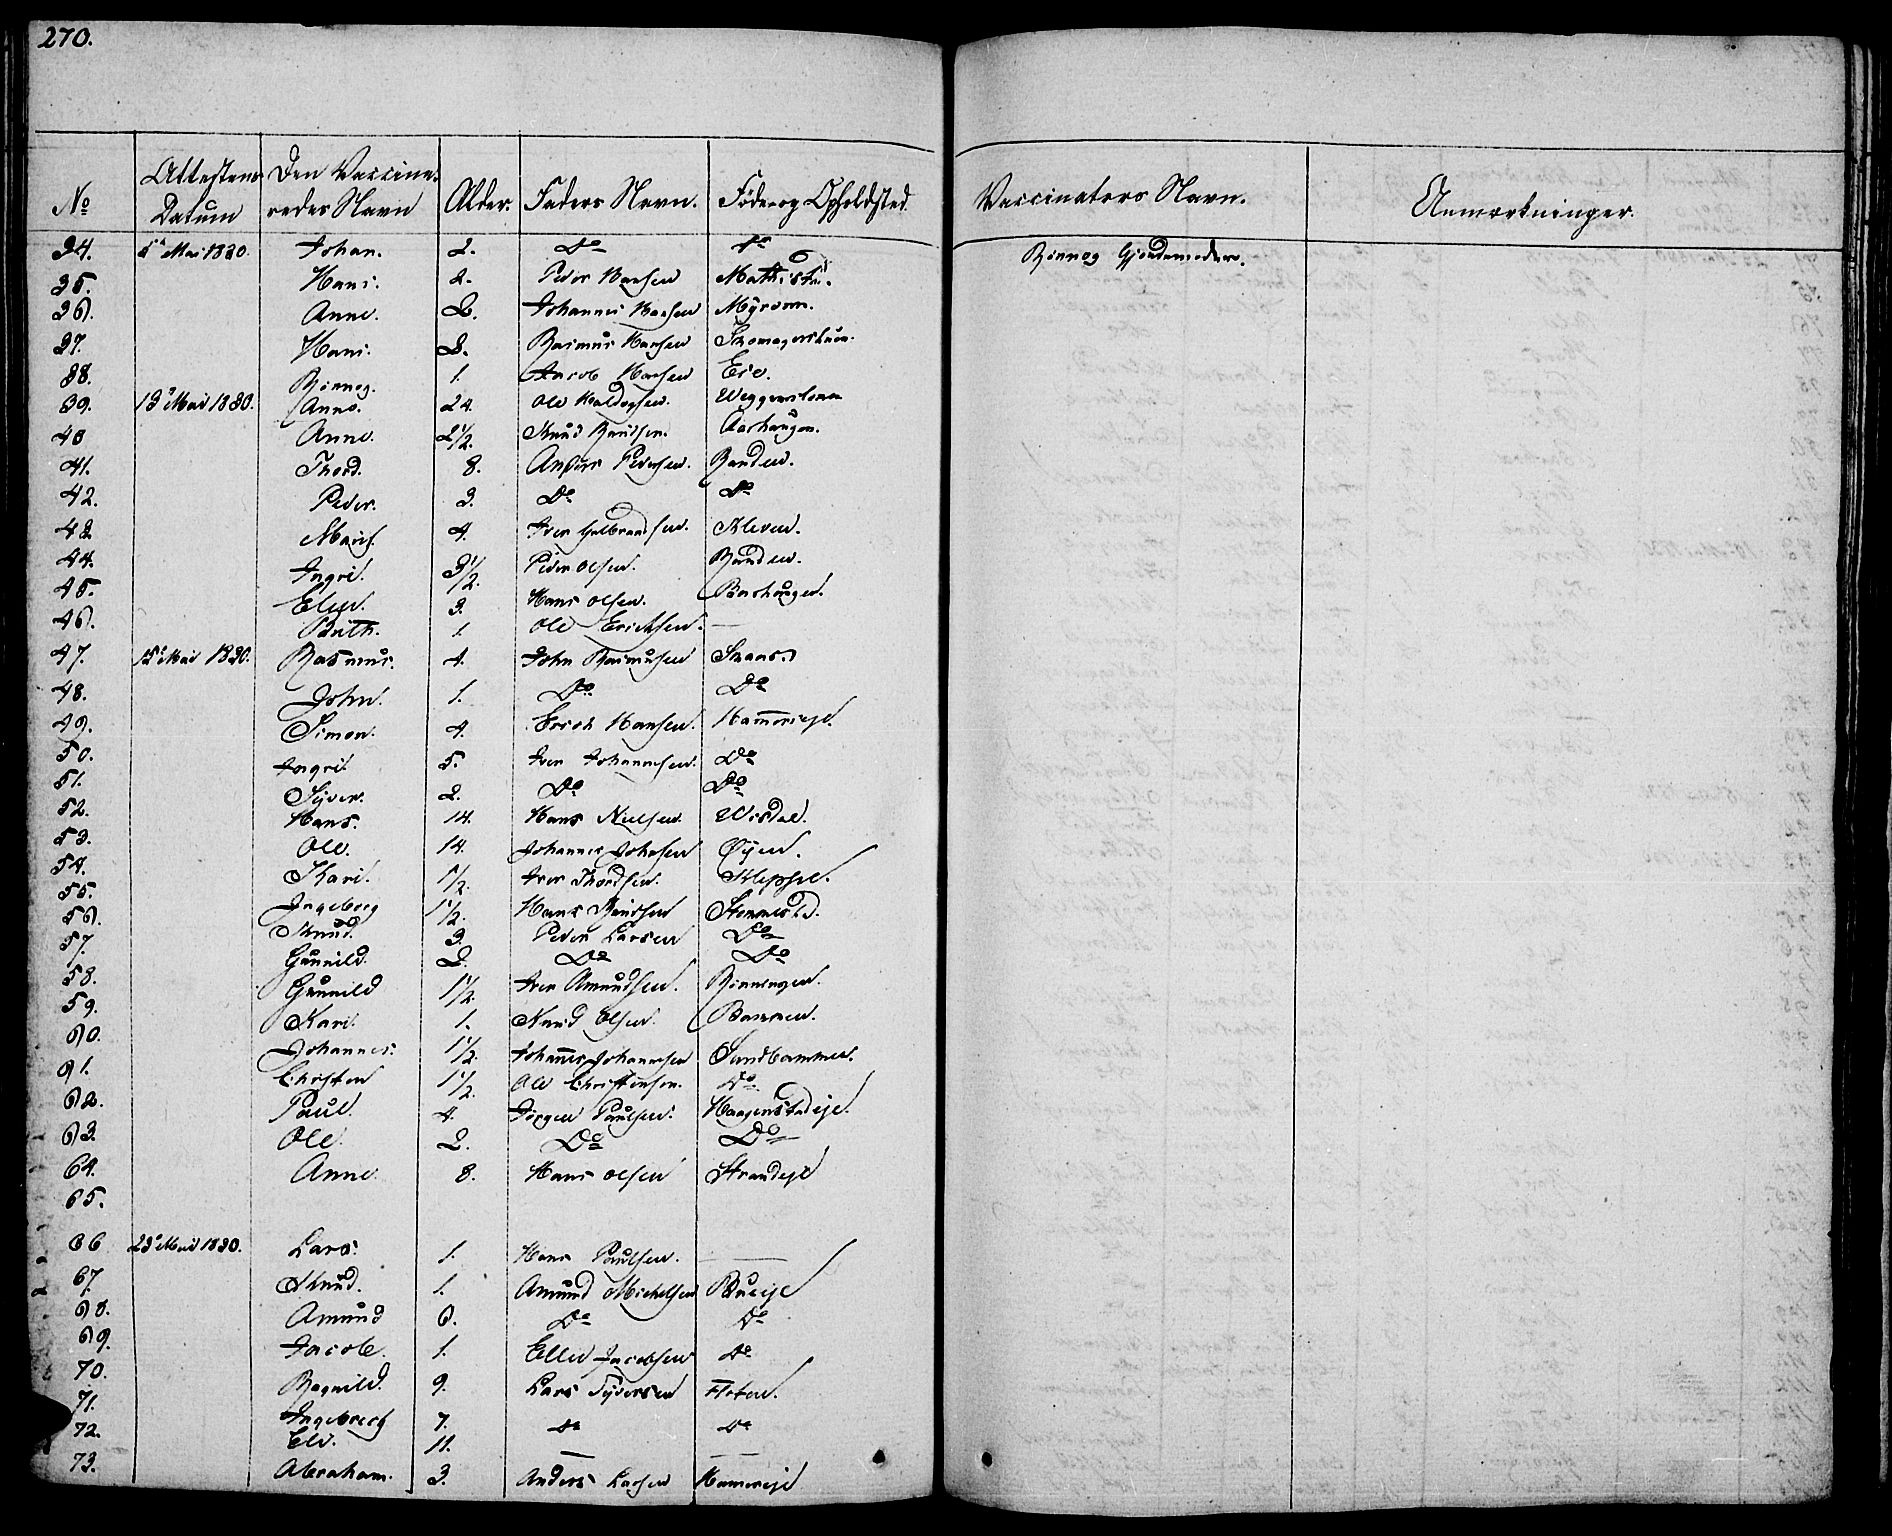 270.
No Attestens Datum Den Vaccineredes Navn Alder. Faders Navn. Føde og Opholdsted. Vaccinators Navn. Anmærkninger.
34. 5te Mai 1830. Johan. 2. Do Do Rønnog Gjordemoder.
35. Hans. 2. Peder Hansen
36. Anne. 2. Johannes Hansen Myromr.
37. Hans. 2. Rasmus Hansen Skomagerstuen.
38. Rønnog. 1. Jacob Hansen Eie.
39. 13 Mai 1830. Anne. 24. Ole Haldorsen.
40 Anne. 2 1/2. Knud Knudsen. Aarhaugen.
41. Thord. 8. Anders Pedersen. Randen.
42. Peder. 3. Do Do
43 Marit. 4. Iver Gulbrandsen. Kleven.
44. Ingri. 3 1/2. Peder Olsen. Randen.
45. Elen. 3. Hans Olsen. Barhaugen.
46. Ruth. 1. Ole Erichsen. —
47. 15 Mai 1830. Rasmus. 4. John Rasmusen
48. John. 1. Do Do
49. Simon. 4. Erich Hansen. Hammereje.
50. Ingri. 5. Iver Johannesen. Do
51. Syver. 2. Do Do
52. Hans. 14. Hans Nielsen. Visdal.
53. Ole. 14. Johannes Johnsen Øyen.
54. Kari. 1/2. Iver Thordsen. Kleppe.
55. Ingeborg 1 1/2. Hans Knudsen Stommestd.
56. Knud. 3. Peder Larsen Do
57. Gunnild. 2. Do Do
58. Gunnild 1 1/2. Iver Amundsen. Rinningen.
59. Kari. 1. Knud Olsen. Rammen.
60. Johannes. 1 1/2. Johannes Johannesen Sandbammen.
61. Christen 1 1/2. Ole Christensen. Do
62. Paul. 4. Jørgen Paulsen. Haagenstadeje.
63. Ole. 2. Do Do
64. Anne 8. Hans Olsen Strandeje
65.
66 23 Mai 1830. Lars. 1. Hans Paulsen. —
67. Knud. 1. Amund Michelsen Bueeje
68. Amund 6. Do Do
69. Jacob. 1. Ellev Jacobsen Do
70. Ragnild. 9. Lars Syversen Floten.
71. Ingebrecht 7. Do Do
72. Eli. 11. — —
73. Abraham. 3. Anders Larsen Hammereje